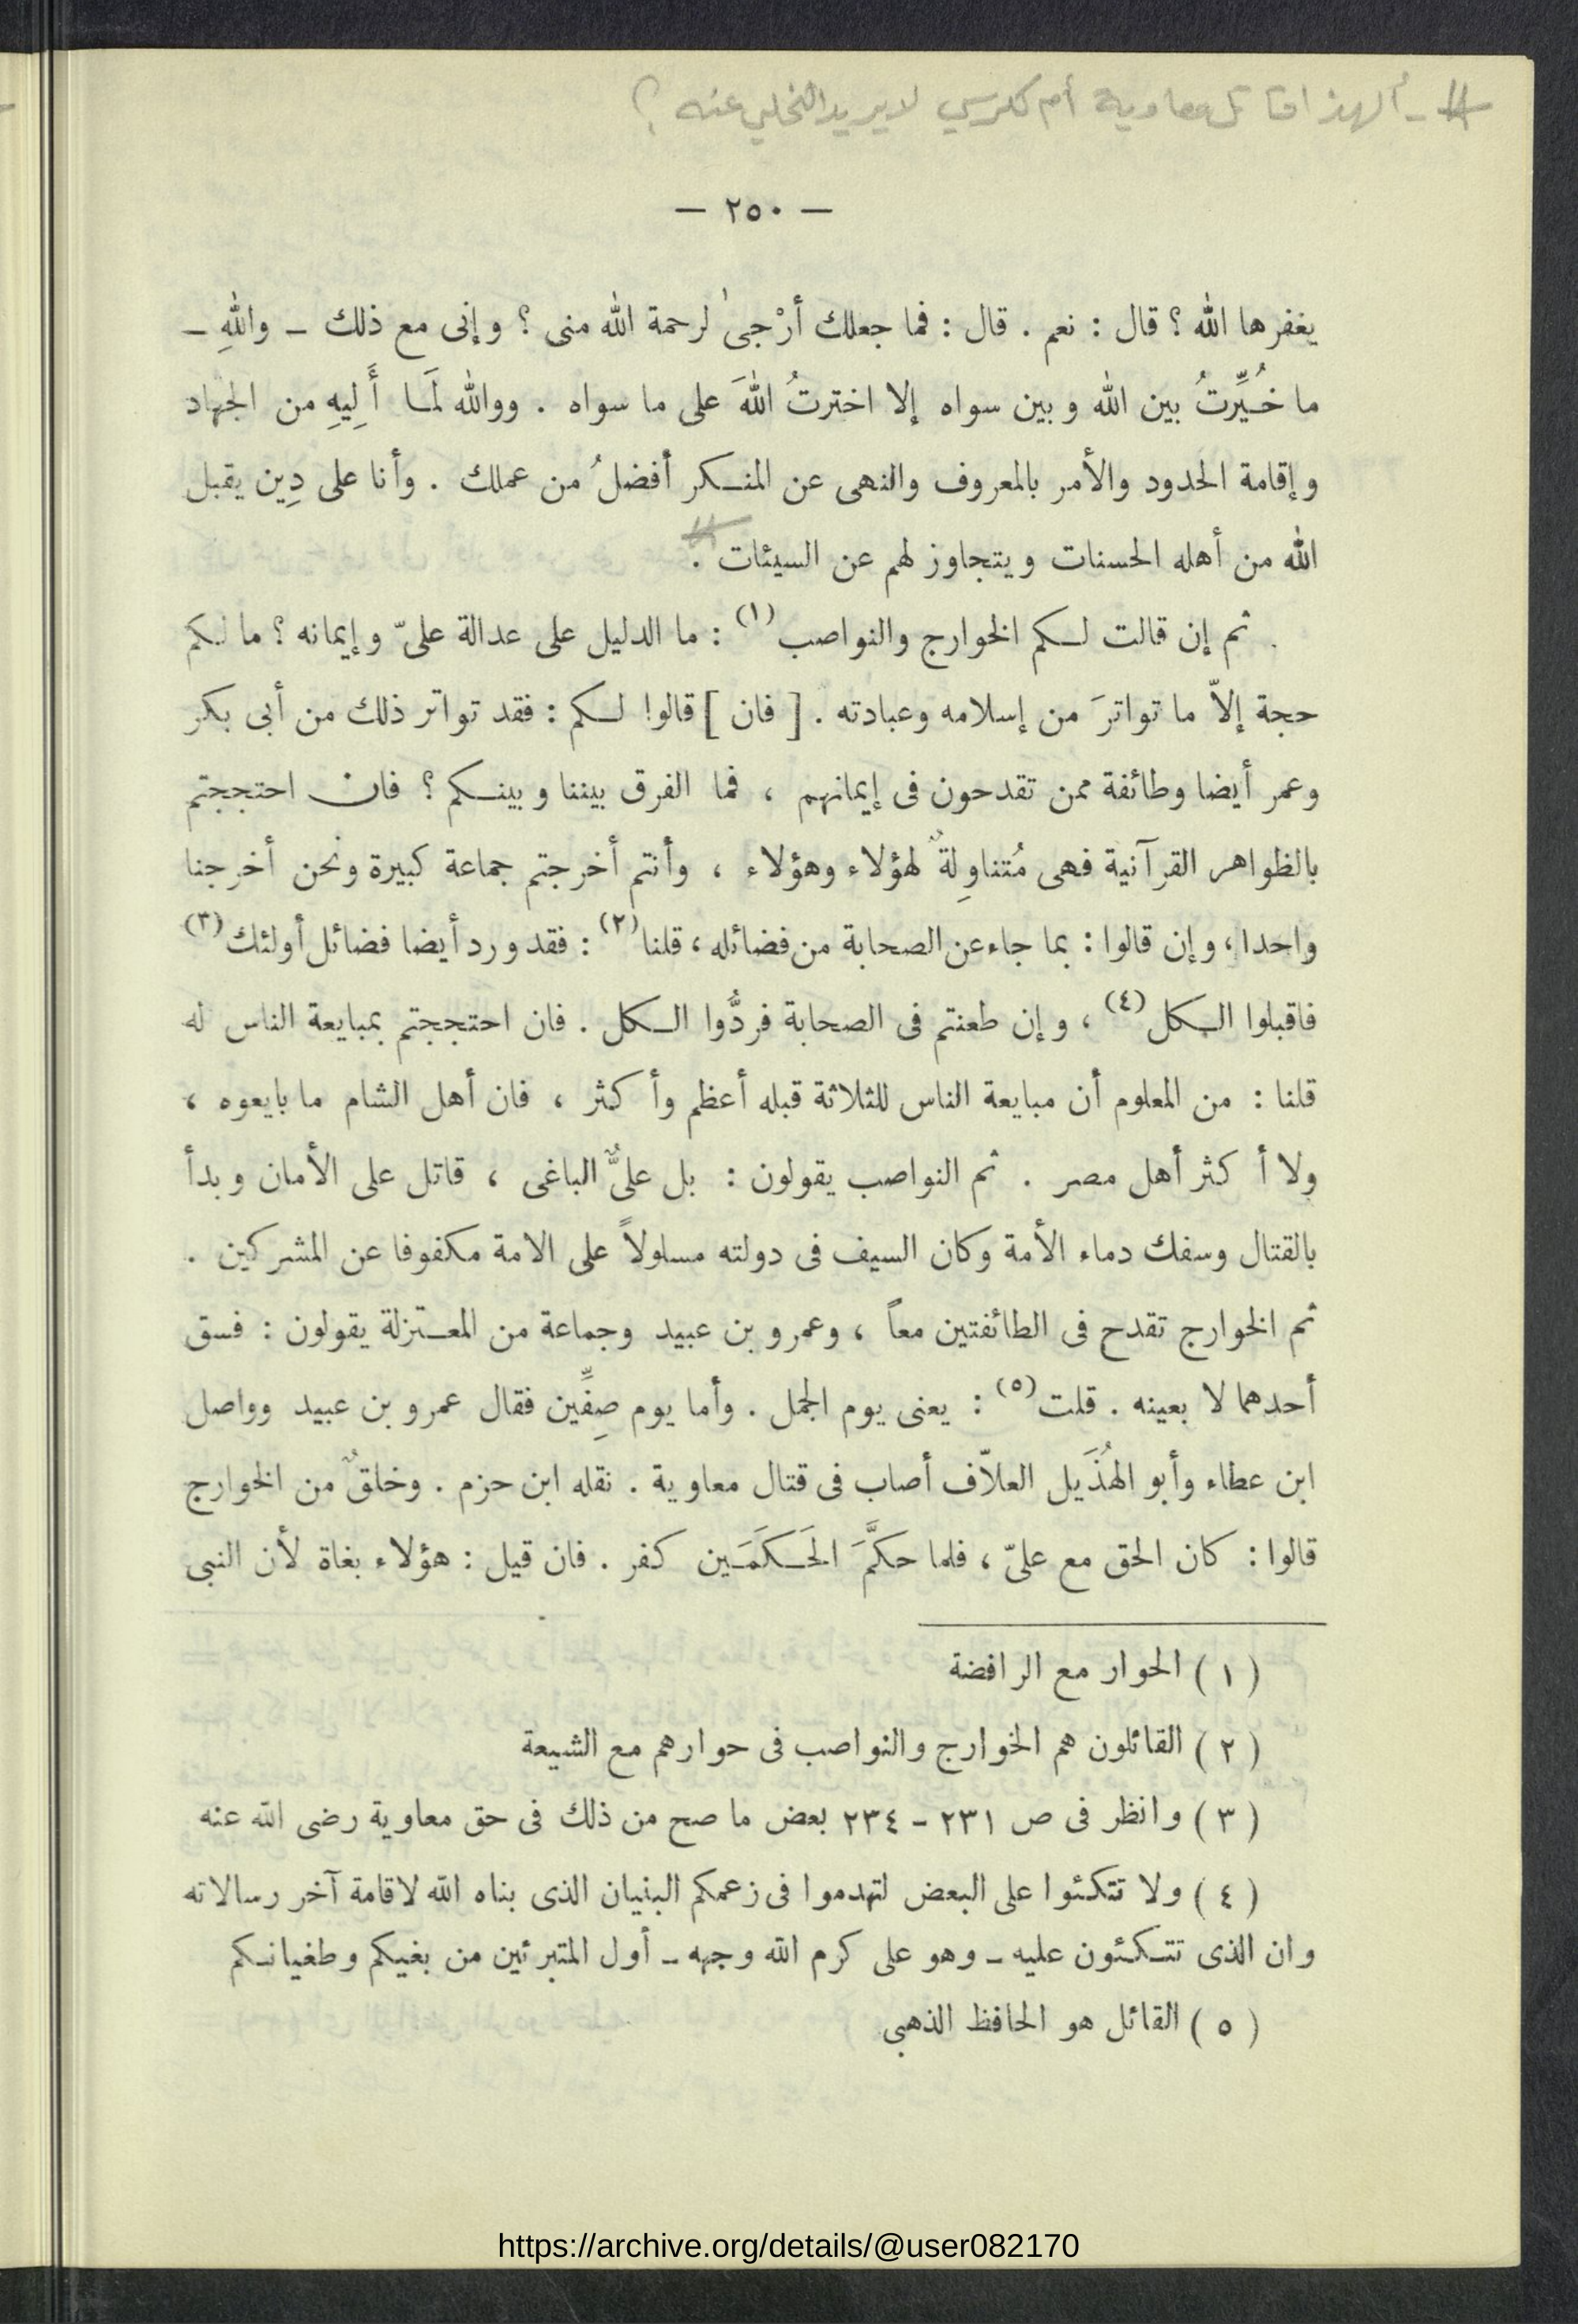 # - ألهذا قاتل معاوية أم لكرسي لا يريد التخلي عنه ؟
— ٢٥٠ —
يغفرها الله ؟ قال : نعم . قال : فما جعلك أرْجىٰ لرحمة الله منى ؟ وإنى مع ذلك – واللهِ –
ما خُيِّرتُ بين الله وبين سواه إلا اخترتُ اللهَ على ما سواه . ووالله لَمَا أَلِيهِ من الجهاد
وإقامة الحدود والأمر بالمعروف والنهى عن المنكر أفضلُ من عملك . وأنا على دِين يقبل
الله من أهله الحسنات ويتجاوز لهم عن السيئات . #
ثم إن قالت لكم الخوارج والنواصب (١) : ما الدليل على عدالة علىّ وإيمانه ؟ ما لكم
حجة إلاّ ما تواترَ من إسلامه وعبادته . [ فان ] قالوا لكم : فقد تواتر ذلك من أبى بكر
وعمر أيضا وطائفة ممن تقدحون فى إيمانهم ، فما الفرق بيننا وبينكم ؟ فان احتججتم
بالظواهر القرآنية فهى مُتناوِلةٌ لهؤلاء وهؤلاء ، وأنتم أخرجتم جماعة كبيرة ونحن أخرجنا
واحدا ، وإن قالوا : بما جاء عن الصحابة من فضائله ، قلنا (٢) : فقد ورد أيضا فضائل أولئك (٣)
فاقبلوا الكل (٤) ، وإن طعنتم فى الصحابة فردُّوا الكل . فان احتججتم بمبايعة الناس له
قلنا : من المعلوم أن مبايعة الناس للثلاثة قبله أعظم وأكثر ، فان أهل الشام ما بايعوه ،
ولا أكثر أهل مصر . ثم النواصب يقولون : بل علىٌّ الباغى ، قاتل على الأمان وبدأ
بالقتال وسفك دماء الأمة وكان السيف فى دولته مسلولاً على الامة مكفوفا عن المشركين .
ثم الخوارج تقدح فى الطائفتين معاً ، وعمرو بن عبيد وجماعة من المعتزلة يقولون : فسق
أحدهما لا بعينه . قلت (٥) : يعنى يوم الجمل . وأما يوم صِفِّين فقال عمرو بن عبيد وواصل
ابن عطاء وأبو الهُذَيل العلاّف أصاب فى قتال معاوية . نقله ابن حزم . وخلقٌ من الخوارج
قالوا : كان الحق مع علىّ ، فلما حكَّمَ الحَكَمَين كفر . فان قيل : هؤلاء بغاة لأن النبى
( ١ ) الحوار مع الرافضة
( ٢ ) القائلون هم الخوارج والنواصب فى حوارهم مع الشيعة
( ٣ ) وانظر فى ص ٢٣١ – ٢٣٤ بعض ما صح من ذلك فى حق معاوية رضى الله عنه
( ٤ ) ولا تتكئوا على البعض لتهدموا فى زعمكم البنيان الذى بناه الله لاقامة آخر رسالاته
وان الذى تتكئون عليه – وهو على كرم الله وجهه – أول المتبرئين من بغيكم وطغيانكم
( ٥ ) القائل هو الحافظ الذهبى
https://archive.org/details/@user082170